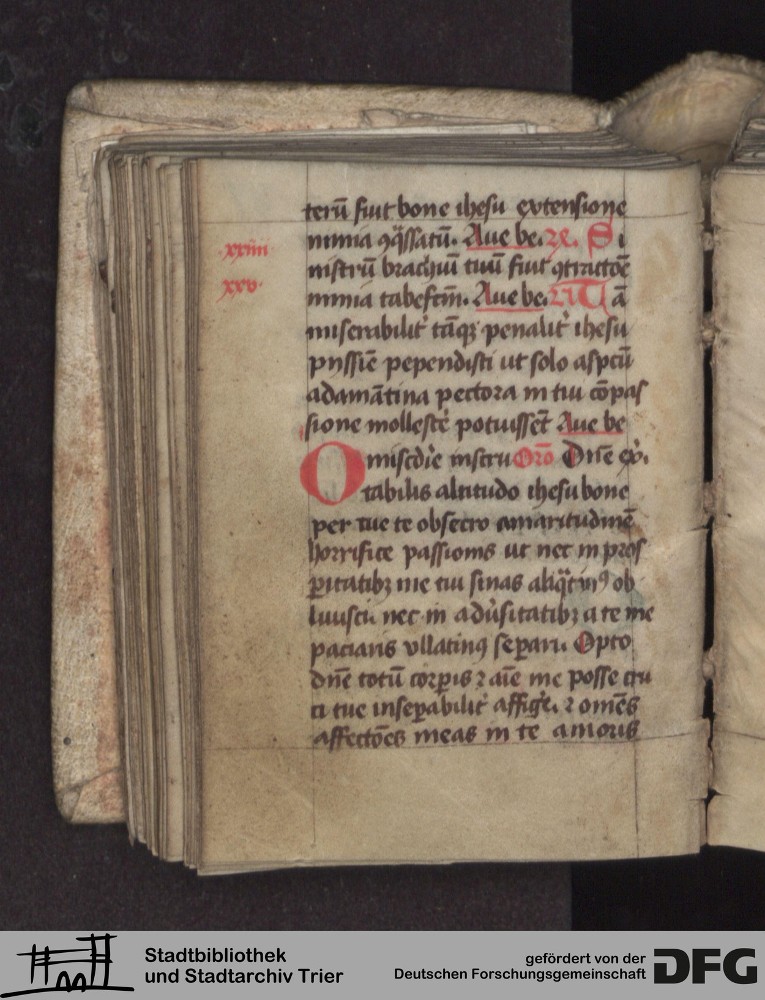 terū fuit bone ihesu extensione
nimia ꝯq̄ssatū. Aue be. xx. Si
.xxiiii.
nistrū brachiū tuū fuit ꝯtractōe
xxv.
nimia tabefctm̄. Aue be. Tā
miserabilit' tāqꝫ penalit' ihesu
pijssie pependisti ut solo aspcū
adamātina pectora in tui cōpas
sione mollescē potuissēt Aue be
O misc̄die inscru Orō Dn̄e
tabilis altitudo ihesu bone
per tue te obsecro amaritudinē
horrifice passionis ut nec in pros
ꝑitatibꝫ me tui sinas ob
liuisci. nec in adūsitatibꝫ a te me
paciaris vllatinꝰ seꝑari. Opto
dn̄e totū corꝑis ⁊ aīe me posse cru
ci tue inseꝑabilit' affig'e. ⁊ omēs
affectōes meas in te amoris
Stadtbibliothek
und Stadtarchiv Trier
gefördert von der
Deutschen Forschungsgemeinschaft
DFG